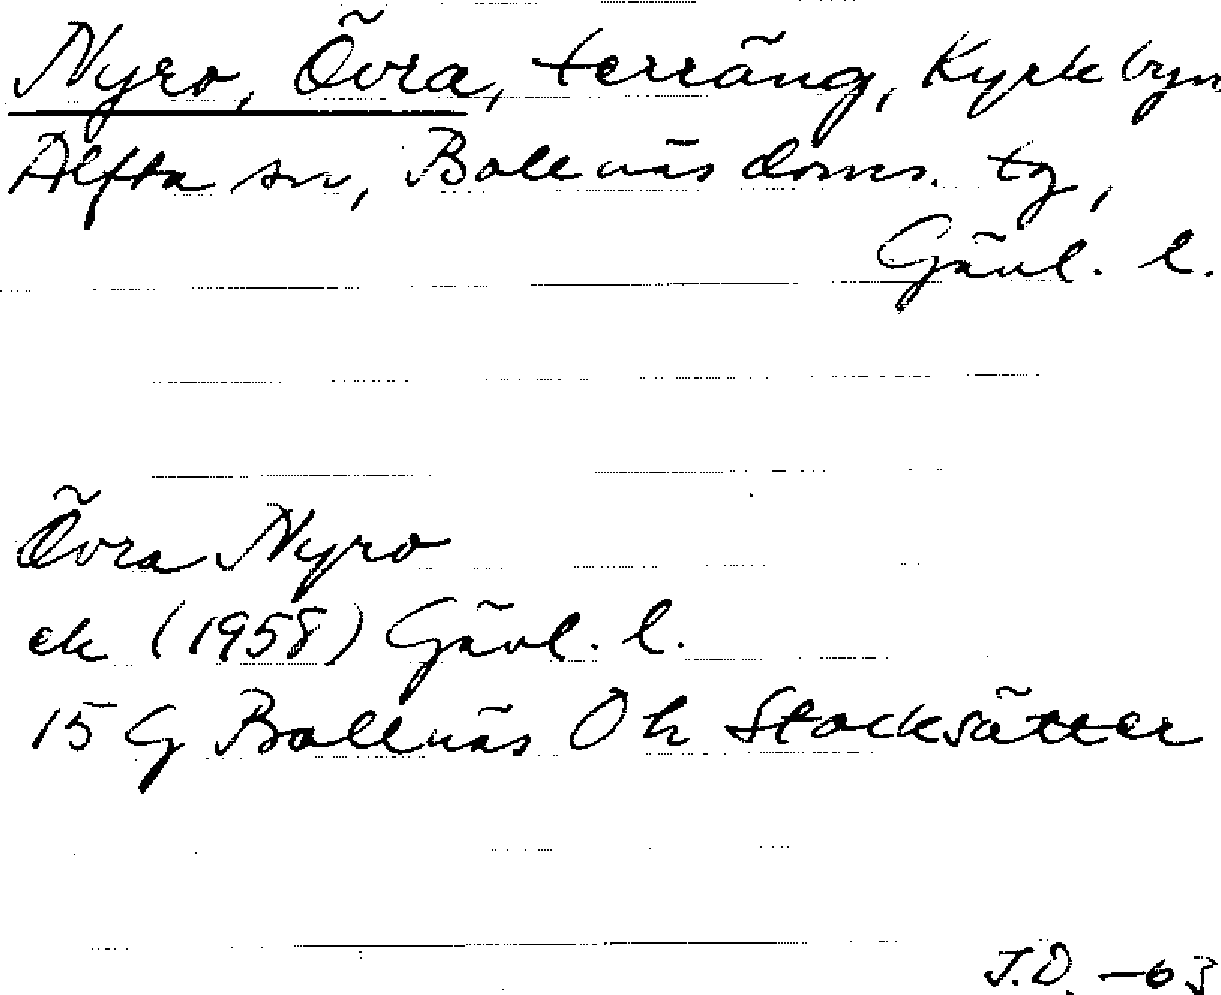 Nyro, Övra, terräng, Kyrkbyn
Alfta sn, Bollnäs doms. tg,
Gävl. l.
Övra Nyro
ek (1958) Gävl. l.
15 G Bollnäs Oh Stocksätter
J.D. -63